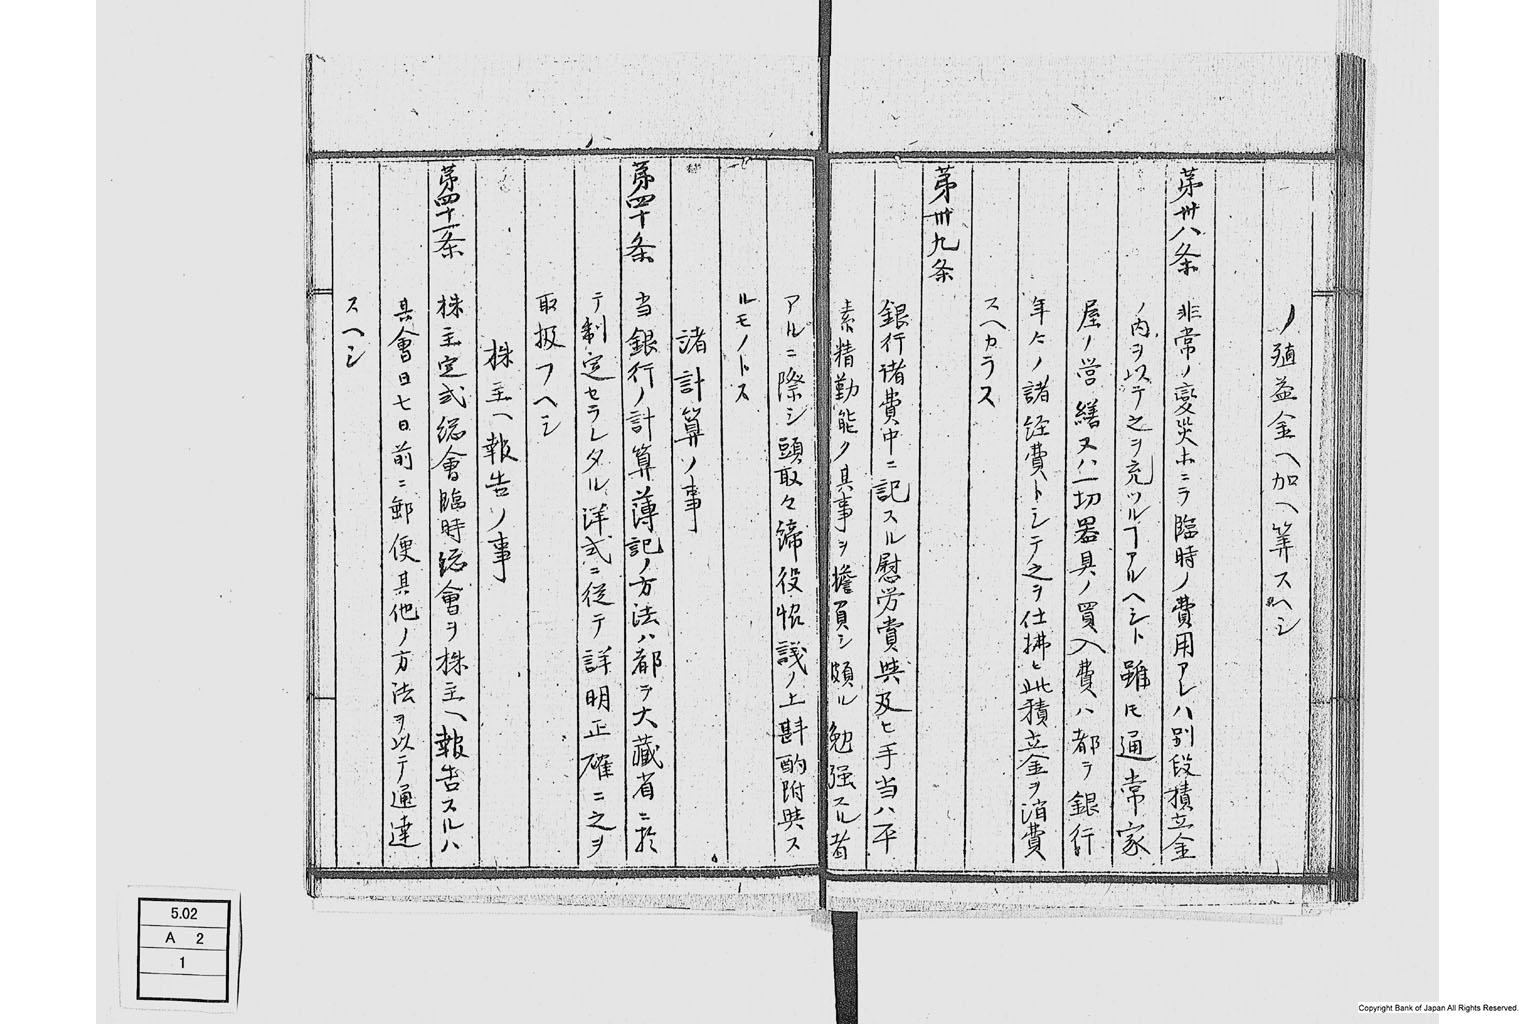 ノ殖益金ヘ加ヘ算スヘシ
第卅八条
非常ノ変災ホニテ臨時ノ費用アレハ別段積立金
ノ内ヲ以テ之ヲ充ツルヿアルヘシト雖モ通常家
屋ノ営繕又ハ一切器具ノ買入費ハ都テ銀行
年々ノ諸経費トシテ之ヲ仕拂ヒ此積立金ヲ消費
スヘカラス
第卅九条
銀行諸費中ニ記スル慰労賞與及ヒ手当ハ平
素精勤能ク其事ヲ擔負シ頗ル勉強スル者
アルニ際シ頭取々締役協議ノ上斟酌附與ス
ルモノトス
諸計算ノ事
第四十条
当銀行ノ計算簿記ノ方法ハ都テ大藏省ニ於
テ制定セラレタル洋式ニ従テ詳明正確ニ之ヲ
取扱フヘシ
株主ヘ報告ノ事
第四十一条
株主定式総會臨時総會ヲ株主ヘ報告スルハ
其會日七日前ニ郵便其他ノ方法ヲ以テ通達
スヘシ
5.02
A 2
1
Copyright Bank of Japan All Rights Reserved.